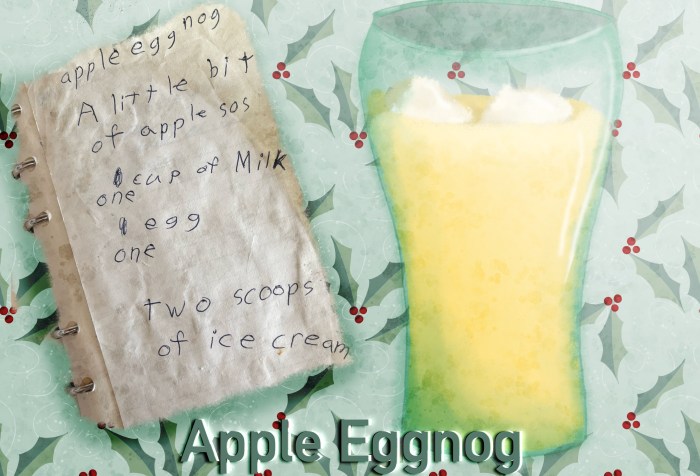 apple eggnog
A little bit
of apple sos
1 cup of Milk
one
1 egg
one
two scoops
of ice cream
Apple Eggnog